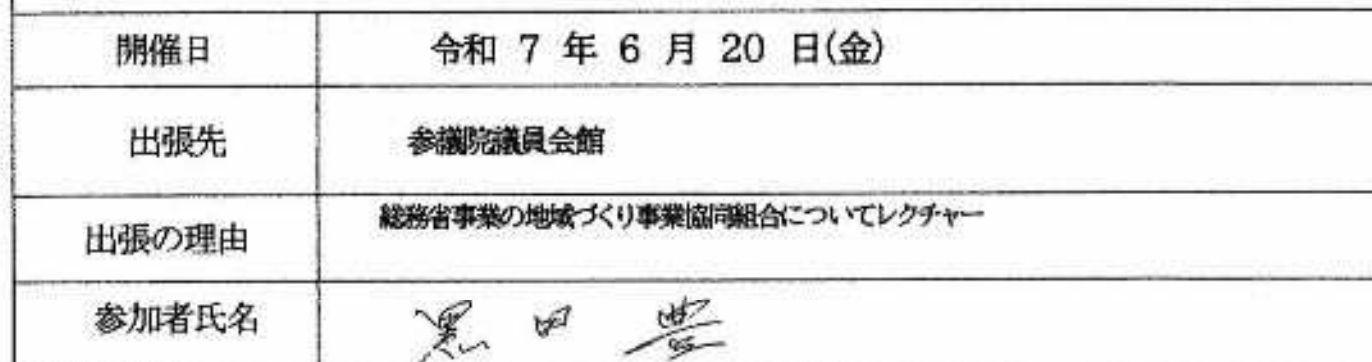 開催日 令和 7 年 6 月 20 日(金)
出張先 参議院議員会館
出張の理由 総務省事業の地域づくり事業協同組合についてレクチャー
参加者氏名 黒田 豊